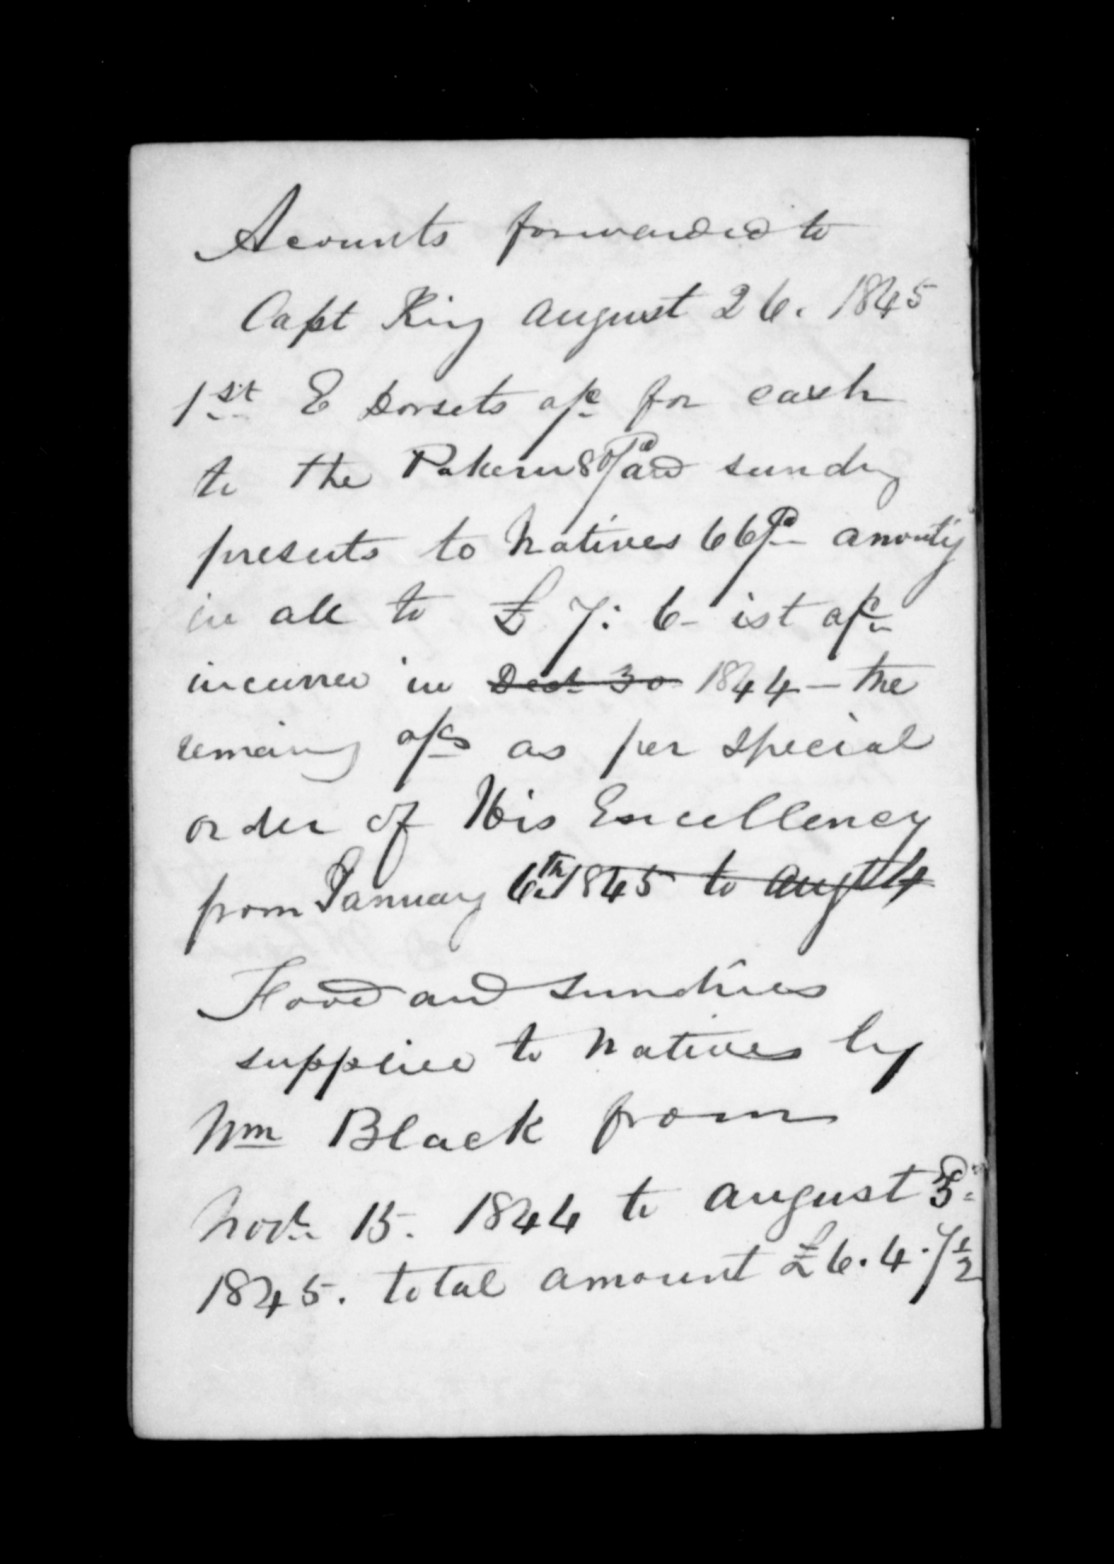 Acounts forwarded to
Capt King August 26. 1845
1st E Dorsets a/c for cash
to the Pakeru 80/ and sundry
presents to Natives 66/ amouty
in all to £ 7: 6 - ist a/c
incurred in Dect 30 1844 - the
remaining a/cs as per special
order of His Excellency
from January 6th 1845 to Augt 4
Food and sundries
supplied to Natives by
Wm Black from
Novr 15. 1844 to August
1845. total amount £6.4.7½